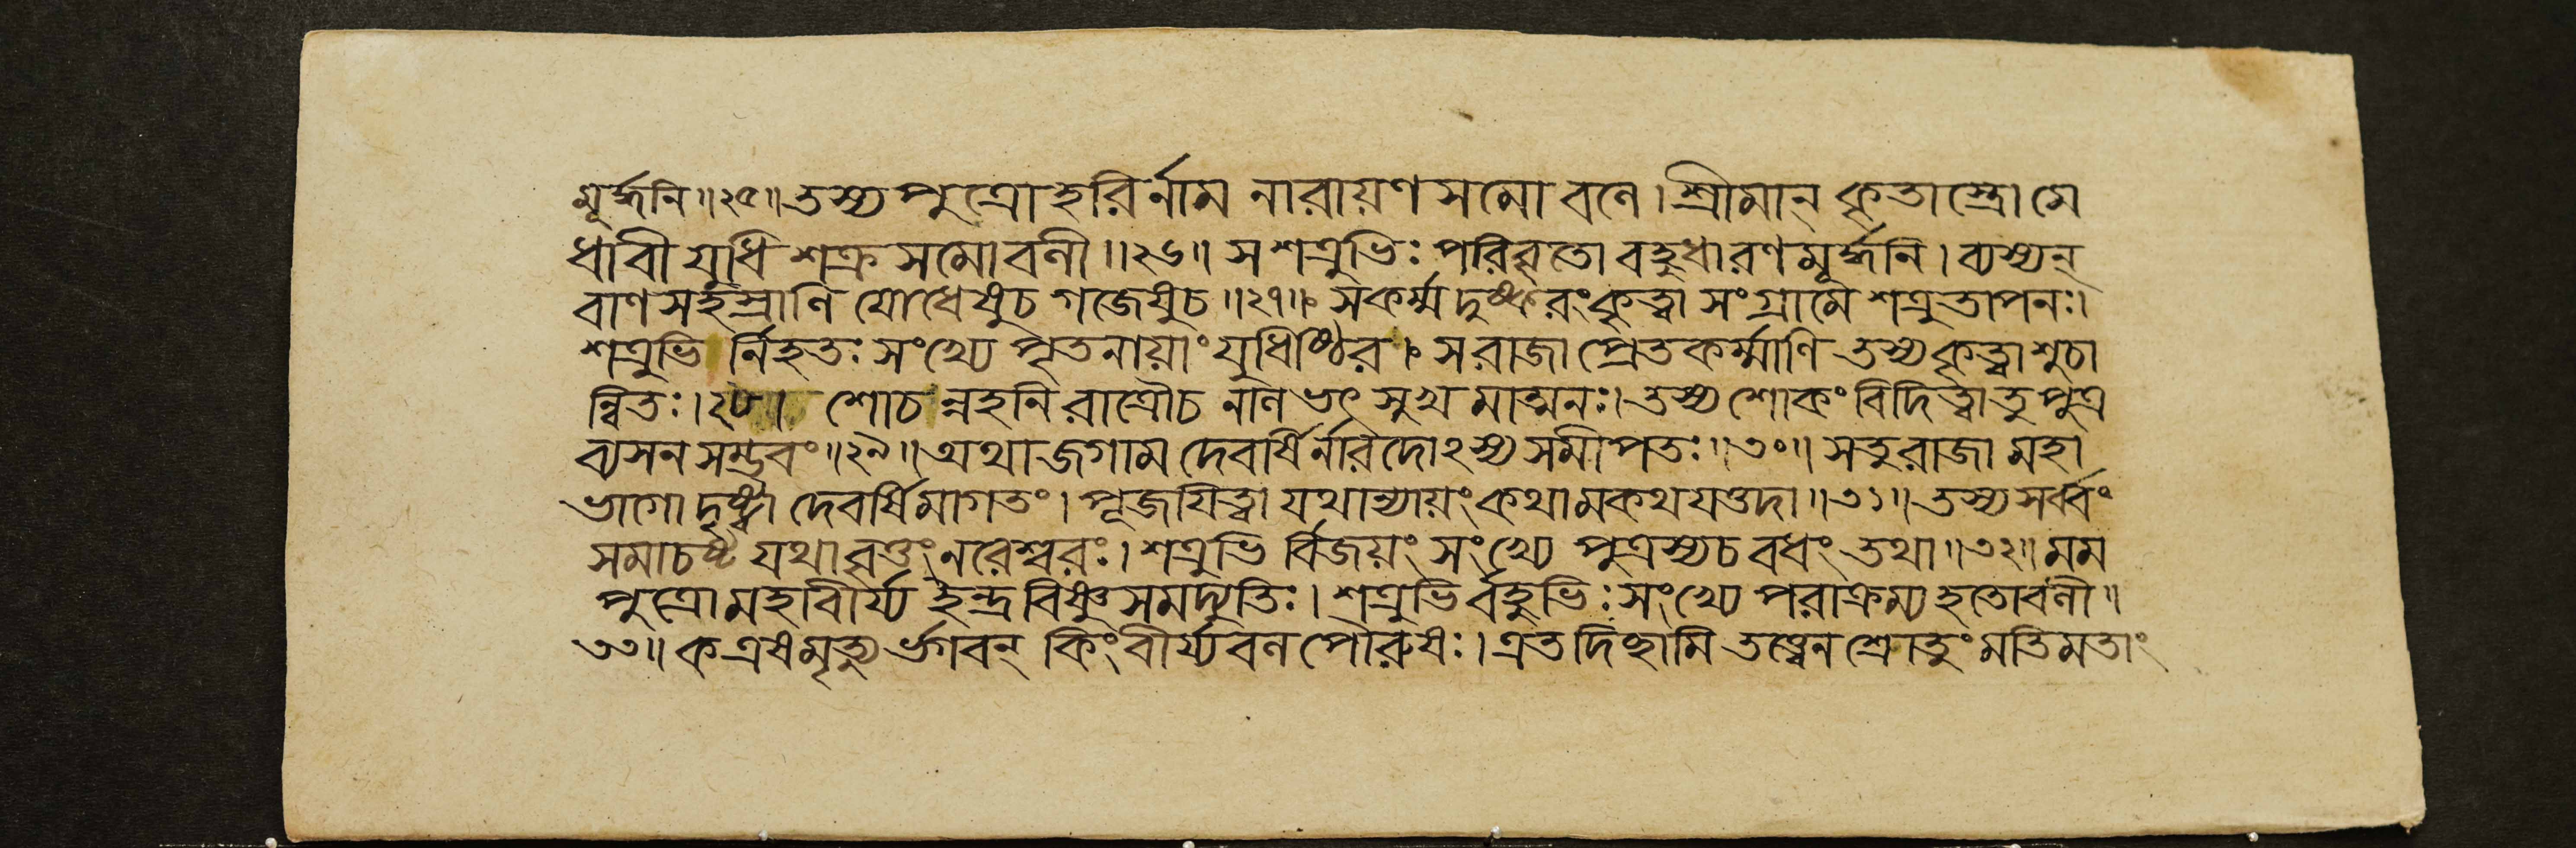 মূর্দ্ধনি॥২৫॥তস্য পুত্রো হরির্নাম নারায়ণ সমো বলে। শ্রীমান্ কৃতাস্ত্রো মে
ধাবী যুধি শক্র সমোবলী॥২৬॥ স শত্রুভিঃ পরিবৃতো বহুধা রণ মূর্দ্ধনি। ব্যস্যন্
বাণ সহস্রাণি যোধেষুচ গজেষুচ॥২৭॥ সকর্ম্ম দুষ্করং কৃত্বা সংগ্রামে শত্রুতাপনঃ।
শত্রুভি র্নিহতঃ সংখ্যে পৃতনায়াং যুধিষ্ঠির। স রাজা প্রেতকর্ম্মাণি তস্য কৃত্বা শুচা
ন্বিতঃ।২৮। শোচ ন্নহনি রাত্রৌচ নালভৎ সুখ মাত্মনঃ। তস্য শোকং বিদিত্বাতু পুত্র
ব্যসন সম্ভবং॥২৯॥ অথাজগাম দেবর্ষি র্নারদোঽস্য সমীপতঃ॥৩০॥ সতু রাজা মহা
ভাগো দৃষ্ট্বা দেবর্ষিমাগতং। পূজয়িত্বা যথান্যায়ং কথামকথয়ত্তদা॥৩১॥ তস্য সর্ব্বং
সমাচষ্ট যথাবৃত্তং নরেশ্বরঃ। শত্রুভি র্বিজয়ং সংখ্যে পুত্রস্যচ বধং তথা॥৩২॥ মম
পুত্রো মহাবীর্য্য ইন্দ্র বিষ্ণু সমদ্যুতিঃ। শত্রুভি র্বহুভিঃ সংখ্যে পরাক্রম্য হতোবলী॥
৩৩॥ ক এষ মৃত্যু র্ভগবন্ কিংবীর্য্যবল পৌরুষঃ। এতদিচ্ছামি তত্ত্বেন শ্রোতুং মতিমতাং